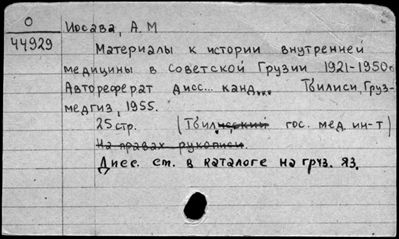 О
44929
Иосава, А. М
Материалы к истории внутренней
медицины в Советской Грузии 1921-1950г.
Автореферат дисс... канд... Тбилиси, Груз-
медгиз, 1955.
25 стр. (Тбилисский гос. мед. ин-т)
На правах рукописи.
Дисс. см. в каталоге на груз. яз.